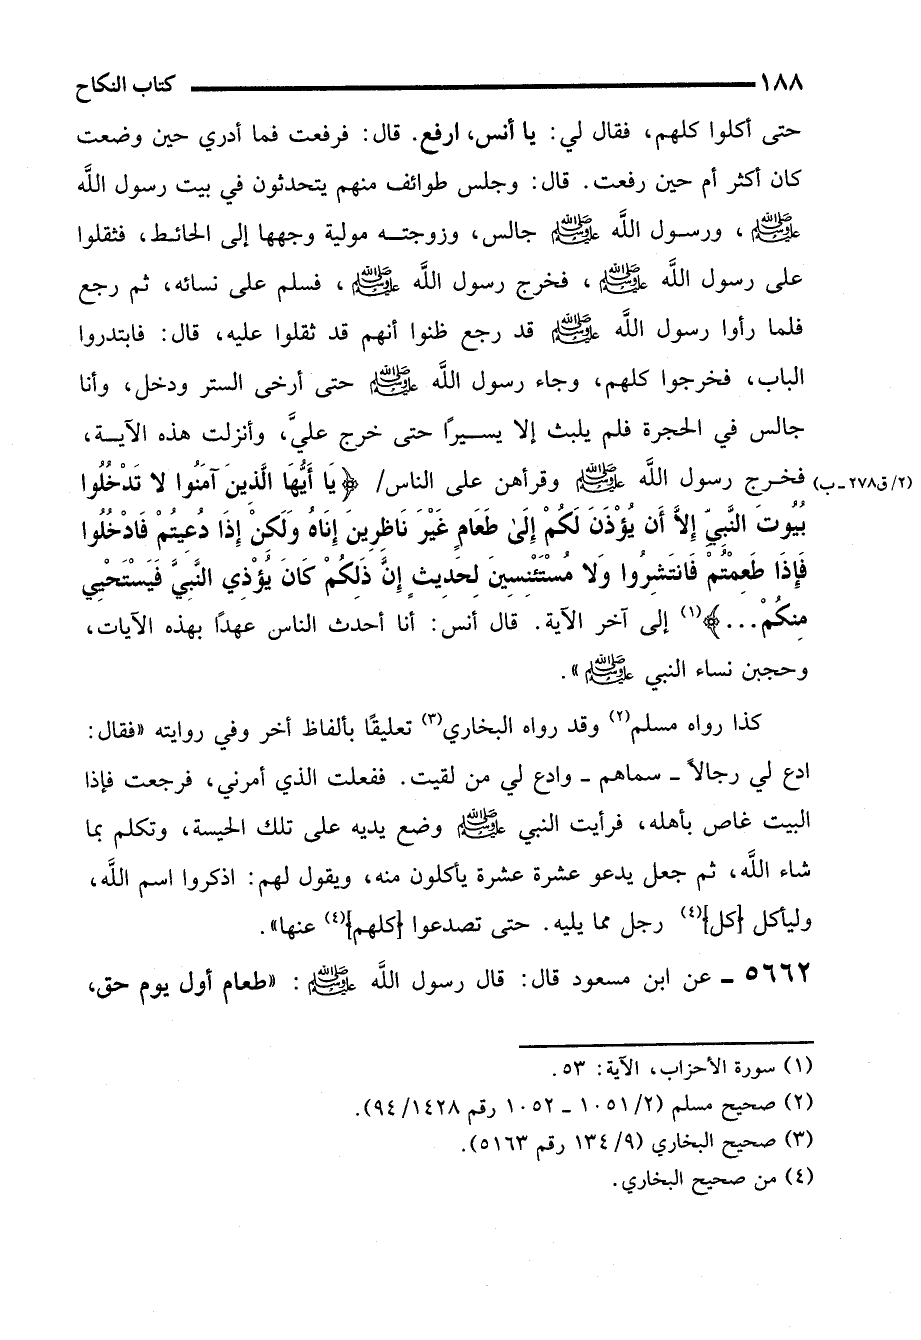 ١٨٨ كتاب النكاح
حتى أكلوا كلهم، فقال لي: يا أنس، ارفع. قال: فرفعت فما أدري حين وضعت
كان أكثر أم حين رفعت. قال: وجلس طوائف منهم يتحدثون في بيت رسول اللَّه
ﷺ، ورسول اللَّه ﷺ جالس، وزوجته مولية وجهها إلى الحائط، فثقلوا
على رسول اللَّه ﷺ، فخرج رسول اللَّه ﷺ، فسلم على نسائه، ثم رجع
فلما رأوا رسول اللَّه ﷺ قد رجع ظنوا أنهم قد ثقلوا عليه، قال: فابتدروا
الباب، فخرجوا كلهم، وجاء رسول اللَّه ﷺ حتى أرخى الستر ودخل، وأنا
جالس في الحجرة فلم يلبث إلا يسيرًا حتى خرج عليَّ، وأنزلت هذه الآية،
(٢/ق٢٧٨ـب) فخرج رسول اللَّه ﷺ وقرأهن على الناس/ ﴿يَا أَيُّهَا الَّذِينَ آمَنُوا لا تَدْخُلُوا
بُيُوتَ النَّبِيِّ إِلاَّ أَن يُؤْذَنَ لَكُمْ إِلَىٰ طَعَامٍ غَيْرَ نَاظِرِينَ إِنَاهُ وَلَكِنْ إِذَا دُعِيتُمْ فَادْخُلُوا
فَإِذَا طَعِمْتُمْ فَانتَشِرُوا وَلا مُسْتَئْنِسِينَ لِحَدِيثٍ إِنَّ ذَلِكُمْ كَانَ يُؤْذِي النَّبِيَّ فَيَسْتَحْيِي
مِنكُمْ...﴾(١) إلى آخر الآية. قال أنس: أنا أحدث الناس عهدًا بهذه الآيات،
وحجبن نساء النبي ﷺ».
كذا رواه مسلم(٢) وقد رواه البخاري(٣) تعليقًا بألفاظ أخر وفي روايته «فقال:
ادع لي رجالاً ـ سماهم ـ وادع لي من لقيت. ففعلت الذي أمرني، فرجعت فإذا
البيت غاص بأهله، فرأيت النبي ﷺ وضع يديه على تلك الحيسة، وتكلم بما
شاء اللَّه، ثم جعل يدعو عشرة عشرة يأكلون منه، ويقول لهم: اذكروا اسم اللَّه،
وليأكل [كل](٤) رجل مما يليه. حتى تصدعوا [كلهم](٤) عنها».
٥٦٦٢ ـ عن ابن مسعود قال: قال رسول اللَّه ﷺ: «طعام أول يوم حق،
(١) سورة الأحزاب، الآية: ٥٣.
(٢) صحيح مسلم (٢/١٠٥١ ـ ١٠٥٢ رقم ٩٤/١٤٢٨).
(٣) صحيح البخاري (٩/١٣٤ رقم ٥١٦٣).
(٤) من صحيح البخاري.